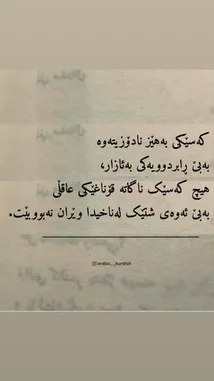 کەسێکی بەهێز نادۆزیتەوە
بەبێ ڕابردوویەکی بەئازار،
هیچ کەسێک ناگاتە قۆناغێکی عاقڵی
بەبێ ئەوەی شتێک لەناخیدا وێران نەبووبێت.
arabic__kurdish